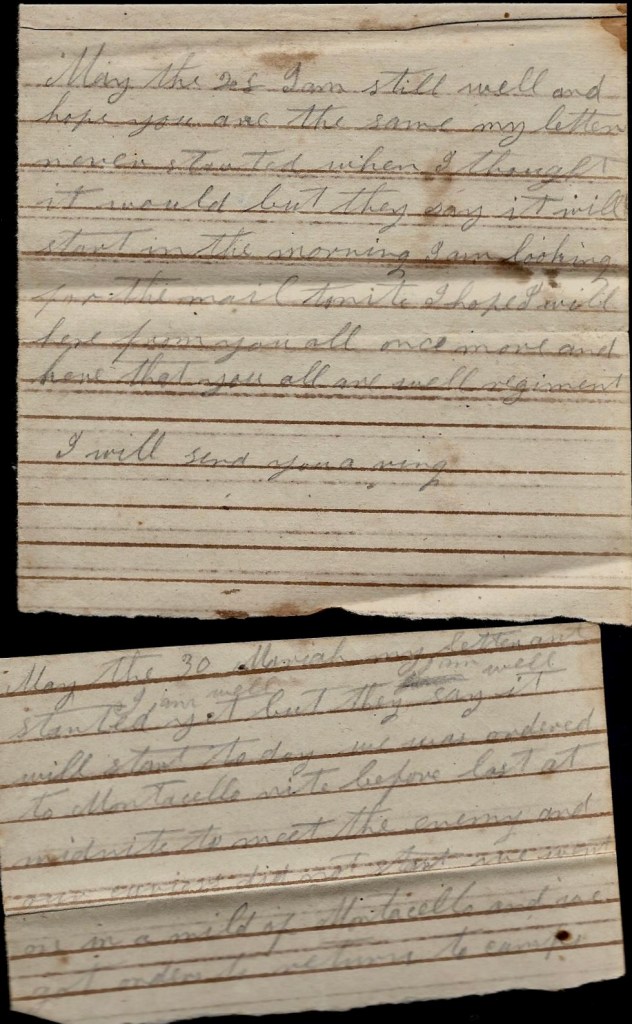 May the 28 I am still well and
hope you are the same my letter
never started when I thought
it would but they say it will
start in the morning I am looking
for the mail tonite I hope I will
here from you all once more and
here that you all are well regiment
I will send you a ring
May the 30 Moriah my letter ant
I am well I am well
started yet but they say it
will start today we was ordered
to Monticello nite before last at
midnite to meet the enemy and
our did not start we went
on in a mild of Monticello and we
got orders to return to camp